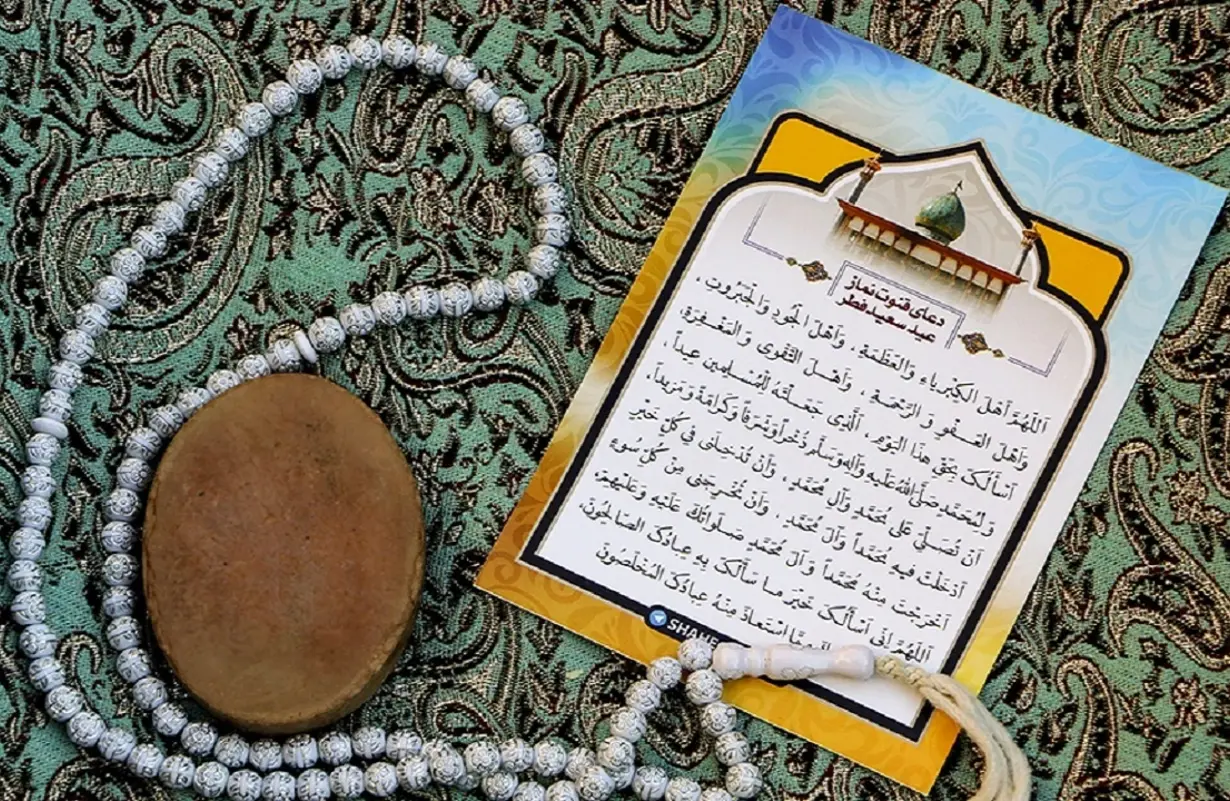 دعای قنوت نماز
عید سعید فطر
اَللّهُمَّ اَهْلَ الْكِبْرِیاءِ وَالْعَظَمَةِ ، وَاَهْلَ الْجُودِ وَالْجَبَرُوتِ ،
وَاَهْلَ الْعَفْوِ وَ الرَّحْمَةِ ، وَاَهْلَ التَّقْوى وَ الْمَغْفِرَةِ،
اَسْأَلُكَ بِحَقِّ هذَا الْیَوْمِ ، اَلَّذِی جَعَلْتَهُ لِلْمُسْلِمینَ عیداً ،
وَلِمُحَمَّدٍ صَلَّى اللهُ عَلَیهِ وَآلِهِ وَسَلَّم ذُخْراً وَشَرَفاً وَكَرامَةً وَمَزیداً،
اَنْ تُصَلِّیَ عَلى مُحَمَّدٍ وَآلِ مُحَمَّدٍ ، وَاَنْ تُدْخِلَنی فی كُلِّ خَیْرٍ
اَدْخَلْتَ فیهِ مُحَمَّداً وَآلَ مُحَمَّدٍ ، وَاَنْ تُخْرِجَنی مِنْ كُلِّ سُوءٍ
اَخْرَجْتَ مِنْهُ مُحَمَّداً وَ آلَ مُحَمَّدٍ صَلَواتُكَ عَلَیْهِ وَعَلَیْهِمْ،
اَللّهُمَّ اِنّی اَسْأَلُكَ خَیْرَ ما سَأَلَكَ بِهِ عِبادُكَ الصّالِحُونَ،
اسْتَعاذَ مِنْهُ عِبادُكَ الْمُخْلَصُونَ